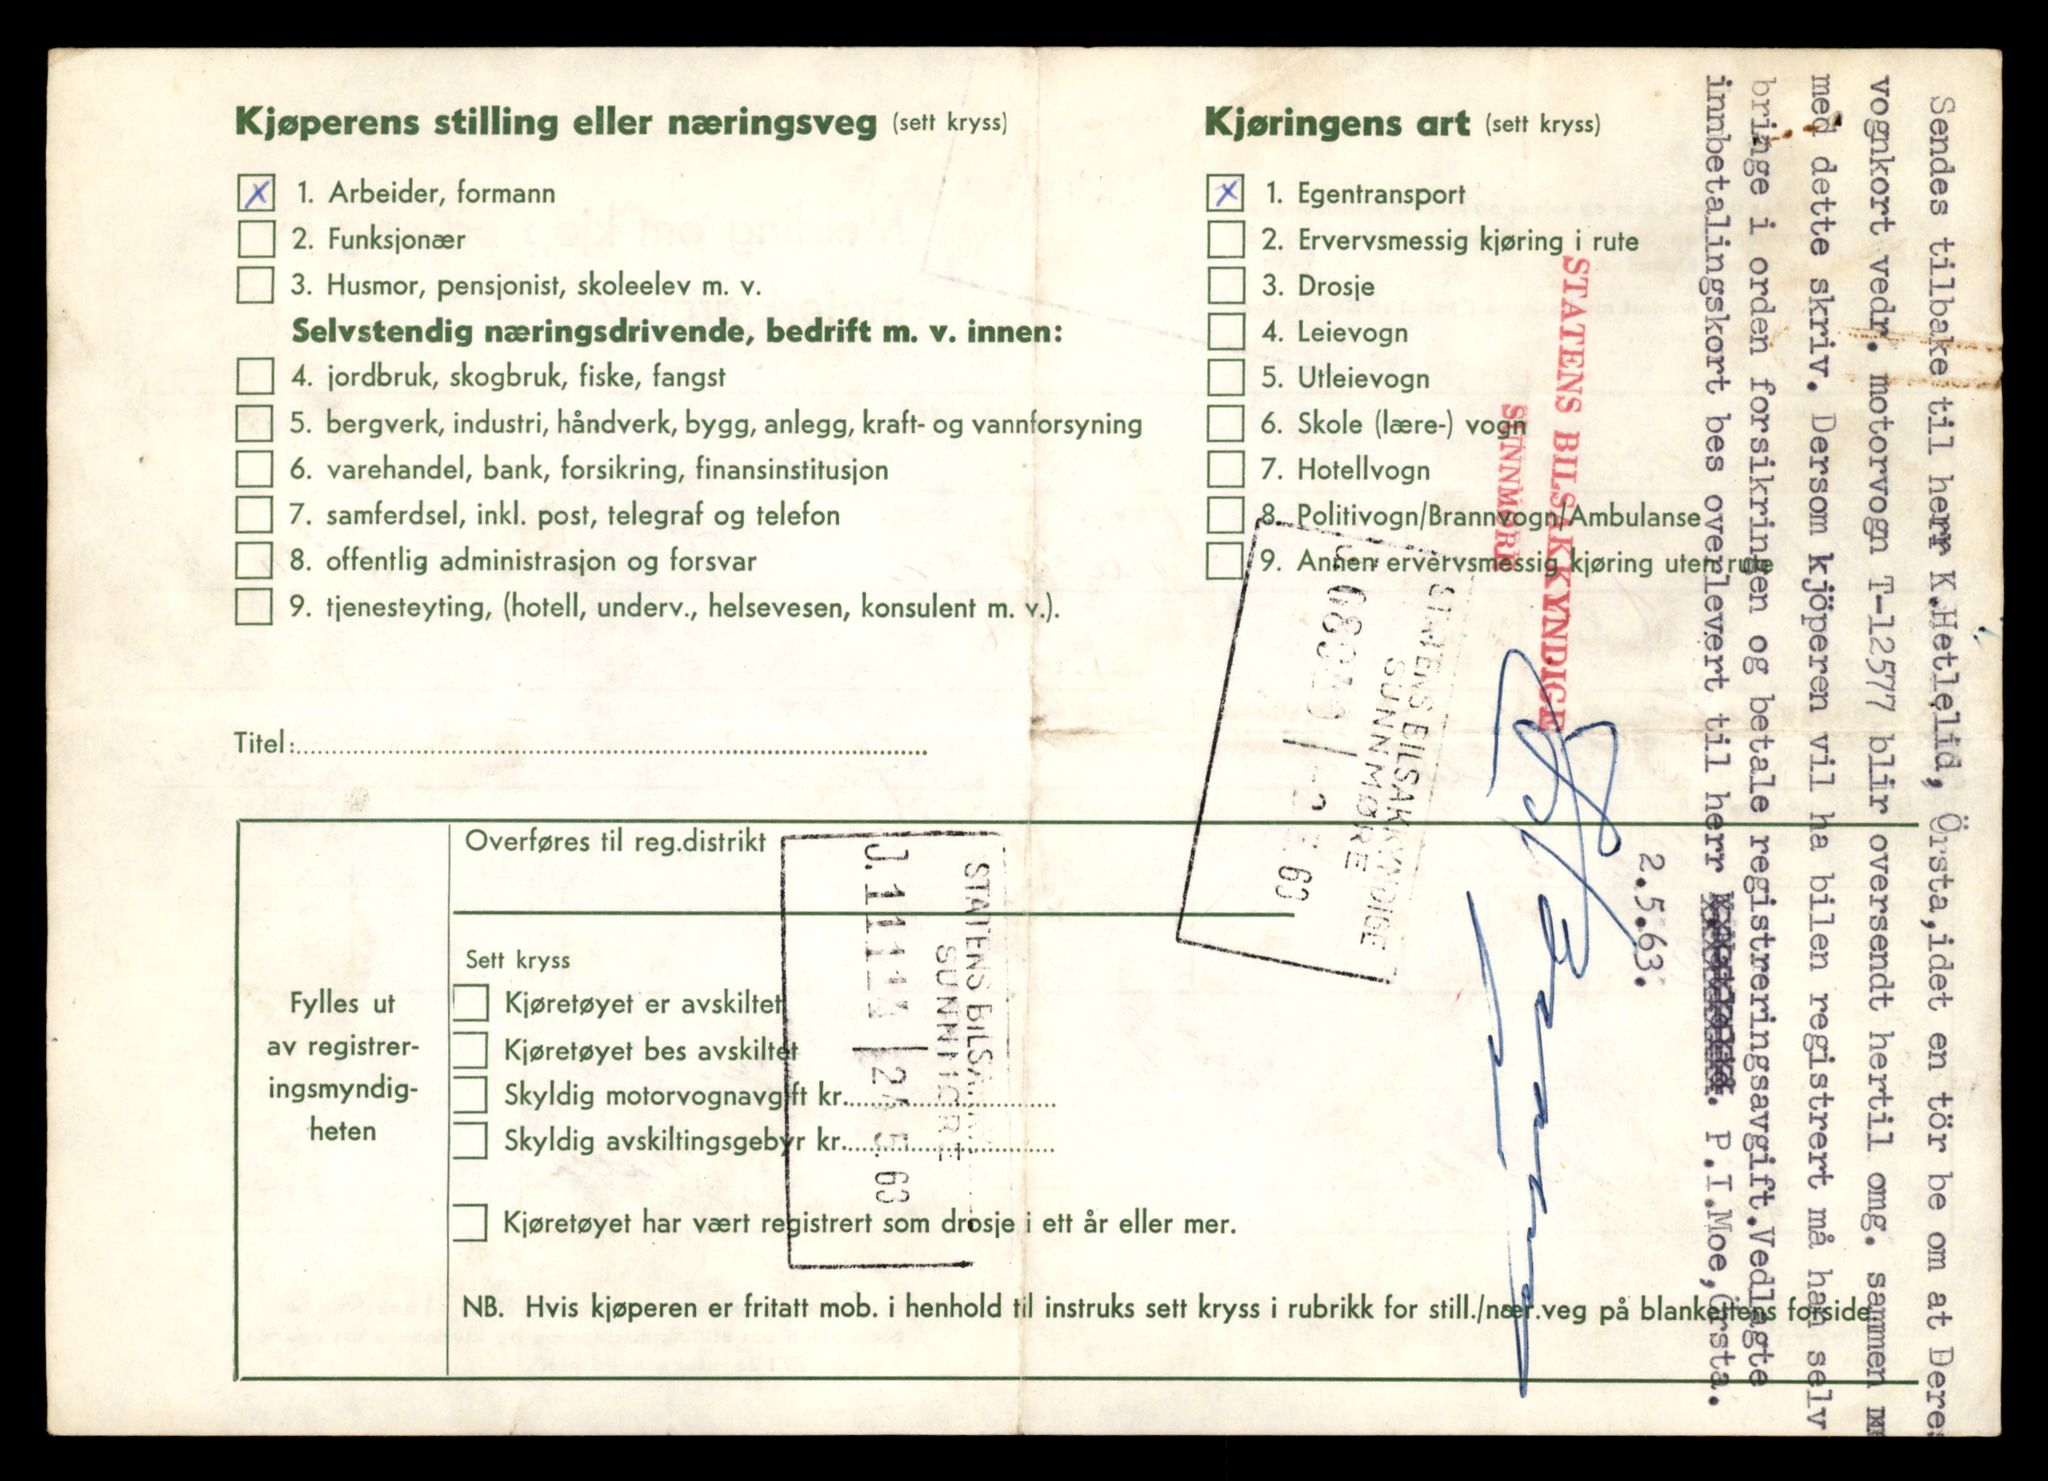 Kjøperens stilling eller næringsveg (sett kryss)
X 1. Arbeider, formann
2. Funksjonær
3. Husmor, pensjonist, skoleelev m. v.
Selvstendig næringsdrivende, bedrift m. v. innen:
4. jordbruk, skogbruk, fiske, fangst
5. bergverk, industri, håndverk, bygg, anlegg, kraft- og vannforsyning
6. varehandel, bank, forsikring, finansinstitusjon
7. samferdsel, inkl. post, telegraf og telefon
8. offentlig administrasjon og forsvar
9. tjenesteyting, (hotell, underv., helsevesen, konsulent m. v.).
Titel:
Kjøringens art (sett kryss)
X 1. Egentransport
2. Ervervsmessig kjøring i rute
3. Drosje
4. Leievogn
5. Utleievogn
6. Skole (lære-) vogn
7. Hotellvogn
8. Politivogn/Brannvogn/Ambulanse
9. Annen ervervsmessig kjøring uten rute
Fylles ut
av registrer-
ingsmyndig-
heten
Overføres til reg.distrikt
Sett kryss
Kjøretøyet er avskiltet
Kjøretøyet bes avskiltet
Skyldig motorvognavgift kr.
Skyldig avskiltingsgebyr kr.
Kjøretøyet har vært registrert som drosje i ett år eller mer.
NB. Hvis kjøperen er fritatt mob. i henhold til instruks sett kryss i rubrikk for still./nær.veg på blankettens forside
STATENS BILSAKKYNDIGE
SUNNMØRE
J. 11114 24.5.63
STATENS BILSAKKYNDIGE
SUNNMØRE
STATENS BILSAKKYNDIGE
SUNNMØRE
Sendes tilbake til herr K.Hetlelid, Örsta,idet en tör be om at Deres
vognkort vedr. motorvogn T-12577 blir oversendt hertil omg. sammen
med dette skriv. Dersom kjöperen vil ha bilen registrert må han selv
bringe i orden forsikringen og betale registreringsavgift.Vedlagte
innbetalingskort bes overlevert til herr P.I.Moe,Örsta.
2.5.63.